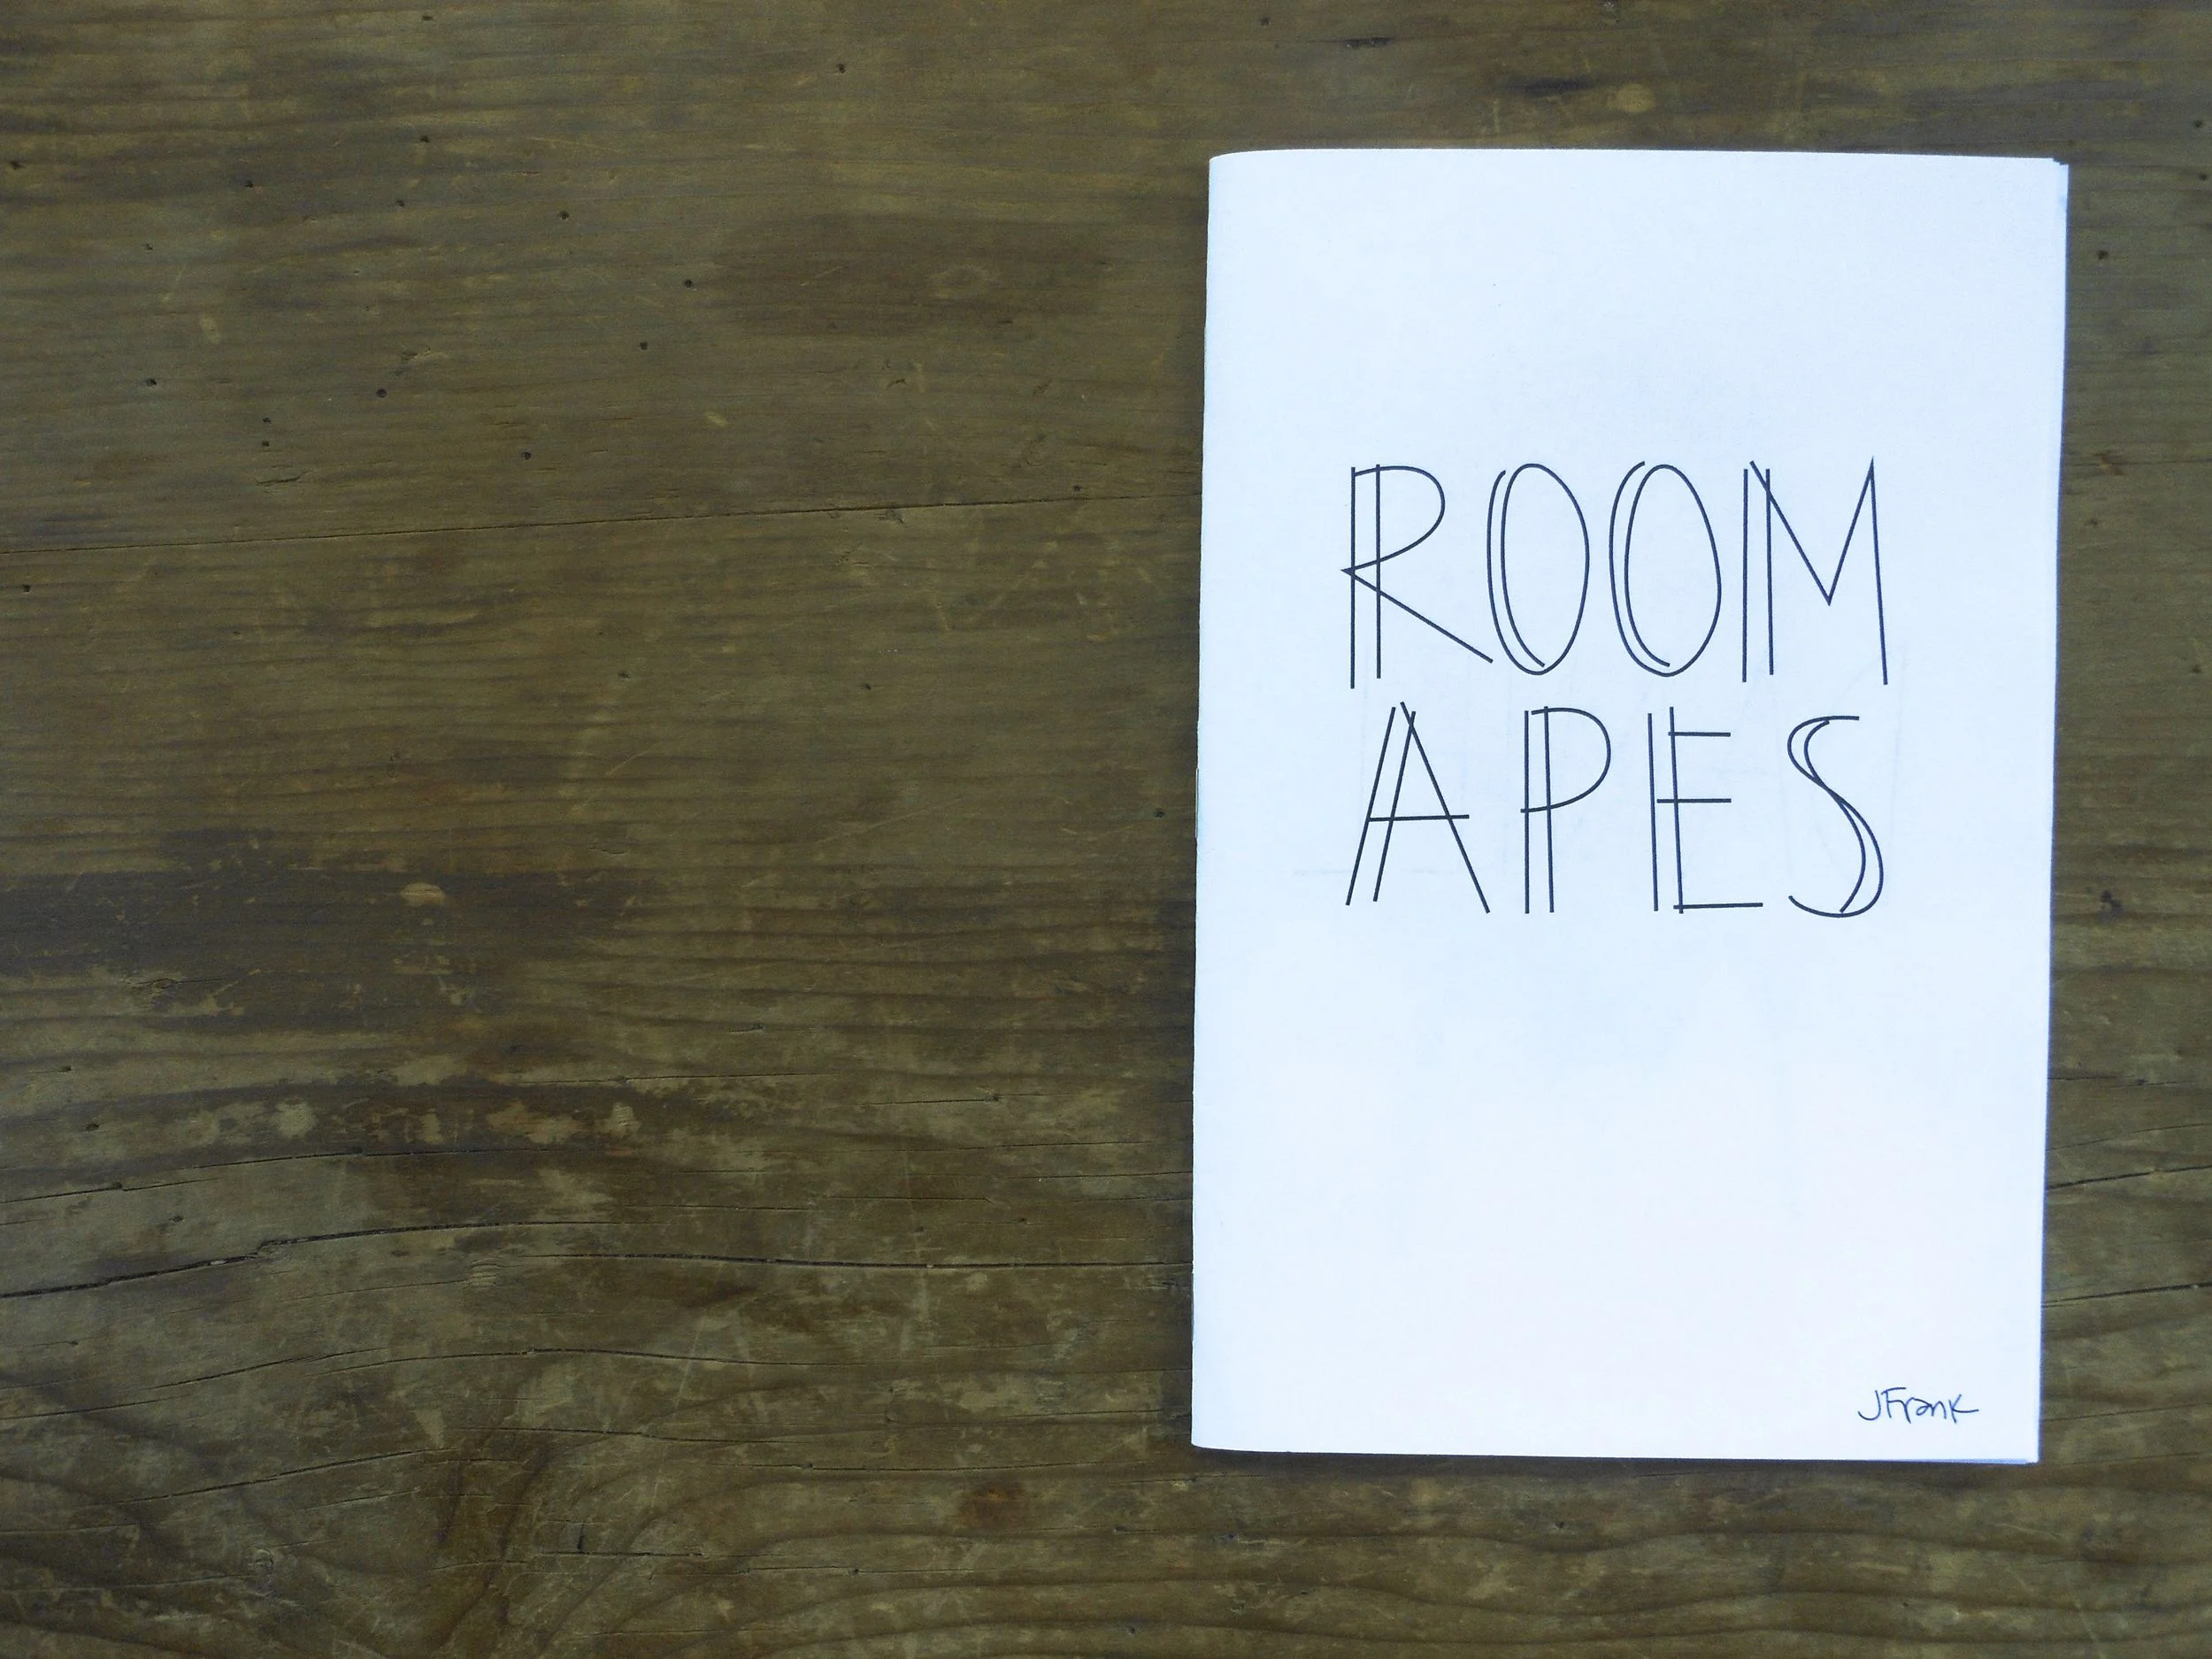 ROOM
APES
JFrank